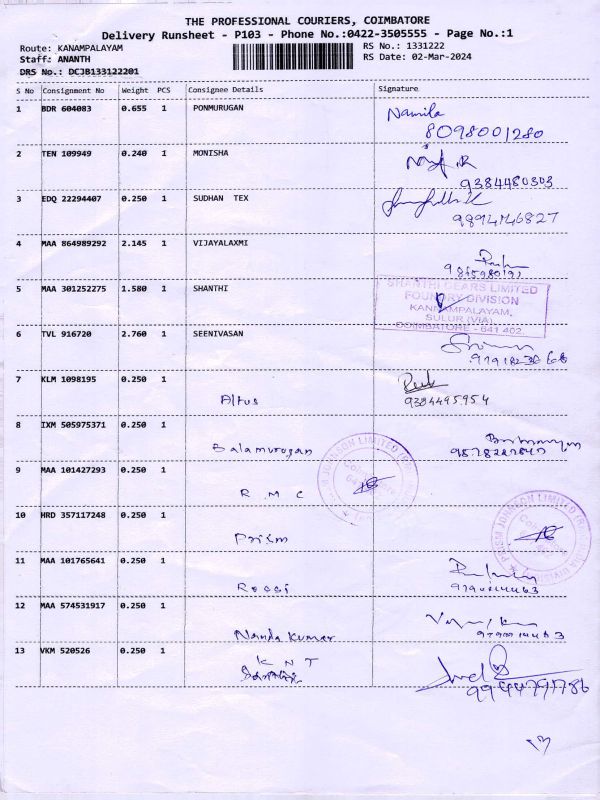 THE PROFESSIONAL COURIERS, COIMBATORE
Delivery Runsheet - P103 - Phone No.:0422-3505555 - Page No.:1
Route: KANAMPALAYAM RS No.: 1331222
Staff: ANANTH RS Date: 02-Mar-2024
DRS No.: DCJB133122201
S No Consignment No Weight PCS Consignee Details Signature
1 BDR 604083 0.655 1 PONMURUGAN Namila
8098001280
2 TEN 109949 0.240 1 MONISHA
9384480303
3 EDQ 22294407 0.250 1 SUDHAN TEX
9894746827
4 MAA 864989292 2.145 1 VIJAYALAXMI
5 MAA 301252275 1.580 1 SHANTHI
SHANTHI GEARS LIMITED
FOUNDRY DIVISION
KANNAMPALAYAM,
SULUR (VIA)
COIMBATORE - 641 402
6 TVL 916720 2.760 1 SEENIVASAN
7 KLM 1098195 0.250 1 Altus
9384495954
8 IXM 505975371 0.250 1 Balamurugan
9 MAA 101427293 0.250 1 R M C
10 HRD 357117248 0.250 1 Prism
PRISM JOHNSON LIMITED
11 MAA 101765641 0.250 1 Rossi
12 MAA 574531917 0.250 1 Nanda Kumar
13 VKM 520526 0.250 1 K N T
9944791786